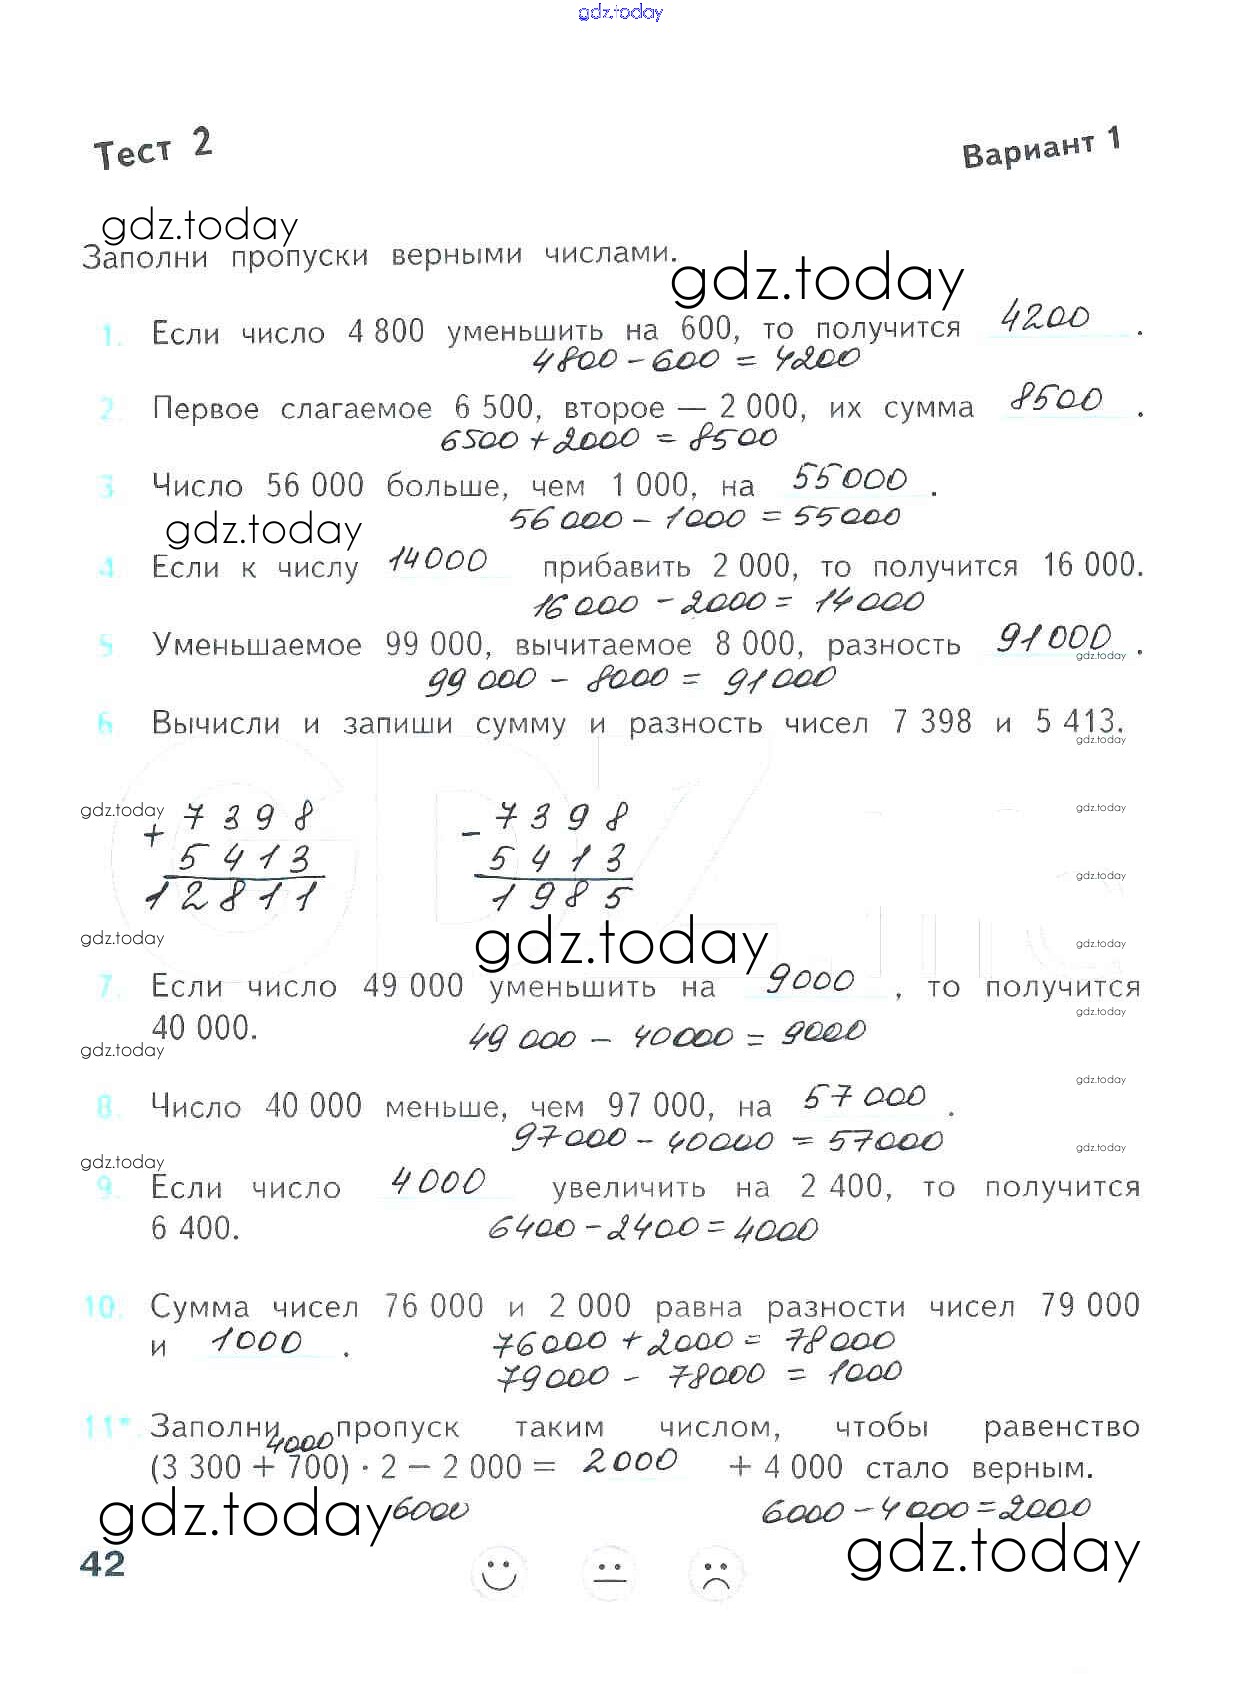 gdz.today
Тест 2
Вариант 1
gdz.today
Заполни пропуски верными числами.
gdz.today
1. Если число 4 800 уменьшить на 600, то получится 4200 .
4800 - 600 = 4200
2. Первое слагаемое 6 500, второе — 2 000, их сумма 8500 .
6500 + 2000 = 8500
3 Число 56 000 больше, чем 1 000, на 55000 .
gdz.today
56 000 - 1000 = 55000
4 Если к числу 14000 прибавить 2 000, то получится 16 000.
16 000 - 2000 = 14 000
5 Уменьшаемое 99 000, вычитаемое 8 000, разность 91 000 .
gdz.today
99 000 - 8000 = 91 000
6 Вычисли и запиши сумму и разность чисел 7 398 и 5 413.
gdz.today
gdz.today
gdz.today
+ 7 3 9 8
5 4 1 3
1 2 8 1 1
- 7 3 9 8
5 4 1 3
1 9 8 5
gdz.today
gdz.today
gdz.today
gdz.today
7. Если число 49 000 уменьшить на 9000 , то получится
gdz.today
40 000.
49 000 - 40000 = 9000
gdz.today
gdz.today
8. Число 40 000 меньше, чем 97 000, на 57 000 .
97000 - 40000 = 57000
gdz.today
gdz.today
9. Если число 4000 увеличить на 2 400, то получится
6 400.
6400 - 2400 = 4000
10. Сумма чисел 76 000 и 2 000 равна разности чисел 79 000
и 1000 .
76000 + 2000 = 78000
79000 - 78000 = 1000
11*. Заполни пропуск таким числом, чтобы равенство
4000
(3 300 + 700) · 2 – 2 000 = 2000 + 4 000 стало верным.
gdz.today
6000
6000 - 4000 = 2000
gdz.today
42